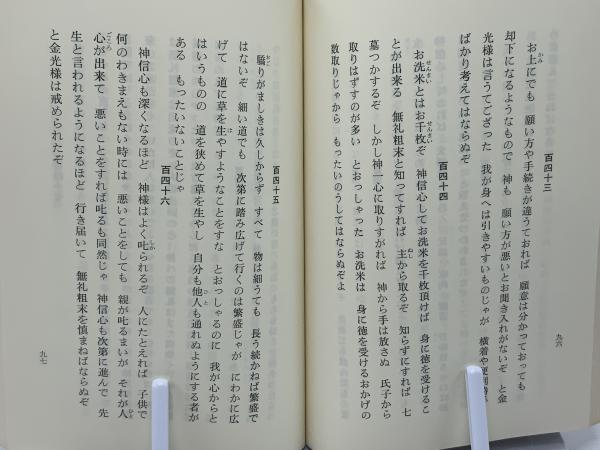 百四十三
お上にでも 願い方や手続きが違うておれば 願意は分かっておっても
却下になるようなもので 神も 願い方が悪いとお聞き入れがないぞ と金
光様は言うてござった 我が身へは引きやすいものじゃが 横着や
ばかり考えてはならぬぞ
百四十四
お洗米とはお千枚ぞ 神信心してお洗米を千枚頂けば 身に徳を受けるこ
とが出来る 無礼粗末と知ってすれば 主から取るぞ 知らずにすれば 七
墓つかするぞ しかし神一心に取りすがれば 神から手は放さぬ 氏子から
取りはずすのが多い とおっしゃった お洗米は 身に徳を受けるおかげの
数取りじゃから もったいのうしてはならぬぞよ
九六
百四十五
驕りがましきは久しからず すべて 物は細うても 長う続かねば繁盛で
はないぞ 細い道でも 次第に踏み広げて行くのは繁盛じゃが にわかに広
げて 道に草を生やすようなことをすな とおっしゃるのに 我が心からと
はいうものの 道を狭めて草を生やし 自分も他人も通れぬようにする者が
ある もったいないことじゃ
百四十六
神信心も深くなるほど 神様はよく叱られるぞ 人にたとえれば 子供で
何のわきまえもない時には 悪いことをしても 親が叱るまいが それが人
心が出来て 悪いことをすれば叱るも同然じゃ 神信心も次第に進んで 先
生と言われるようになるほど 行き届いて 無礼粗末を慎まねばならぬぞ
と金光様は戒められたぞ
九七